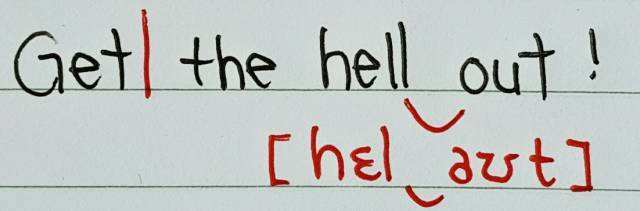 Get| the hell‿out!
[hɛl‿əʊt]